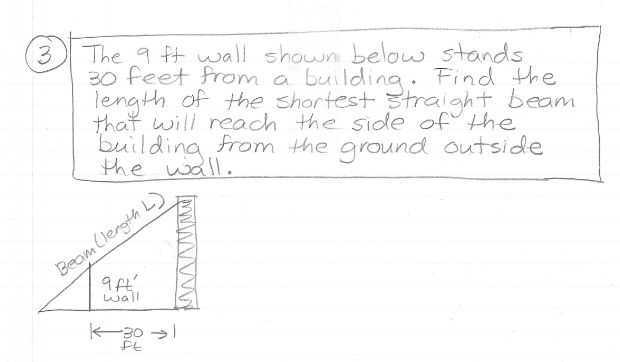 3
The 9 ft wall shown below stands
30 feet from a building. Find the
length of the shortest straight beam
that will reach the side of the
building from the ground outside
the wall.
Beam (length L)
9 ft
wall
30
ft